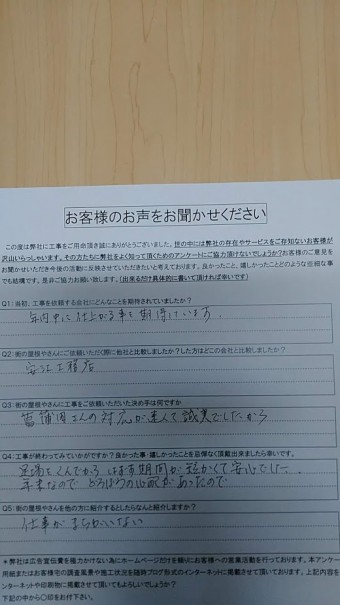 お客様のお声をお聞かせください
この度は弊社に工事をご用命頂き誠にありがとうございました。世の中には弊社の存在やサービスをご存知ないお客様が
沢山いらっしゃいます。その方たちに弊社をよく知って頂くためのアンケートにご協力頂けないでしょうか？お客様のご意見を
お聞かせいただき今後の活動に反映させていただきたいと考えております。良かったこと、嬉しかったことどのような些細な事
でも結構です。是非ご協力お願い致します。(出来るだけ具体的に書いて頂ければ幸いです)
Q1:当初、工事を依頼する会社にどんなことを期待されていましたか？
年内中に仕上がる事を期待しています。
Q2:街の屋根やさんにご依頼いただく際に他社と比較しましたか？した方はどこの会社と比較しましたか？
工務店
Q3:街の屋根やさんに工事をご依頼いただいた決め手は何ですか
菖蒲田さんの対応が速くて誠実でしたから
Q4:工事が終わってみていかがですか？良かった事・嬉しかったことを忌憚なく頂戴出来ましたら幸いです。
足場をくんでから、はずす期間が短かくて安心でした、
年末なのでどろぼうの心配があったので
Q5:街の屋根やさんを他の方に紹介するとしたらなんと紹介しますか？
仕事がまちがいない
＊弊社は広告宣伝費を極力かけない為にホームページだけを頼りにお客様への営業活動を行っております。本アンケー
用紙またはお客様宅の調査風景や施工状況を随時ブログ形式のインターネットに掲載させて頂いております。上記内容を
ンターネットや印刷物に掲載させて頂いてもよろしいでしょうか？
下記の中から〇印をお付け下さい。